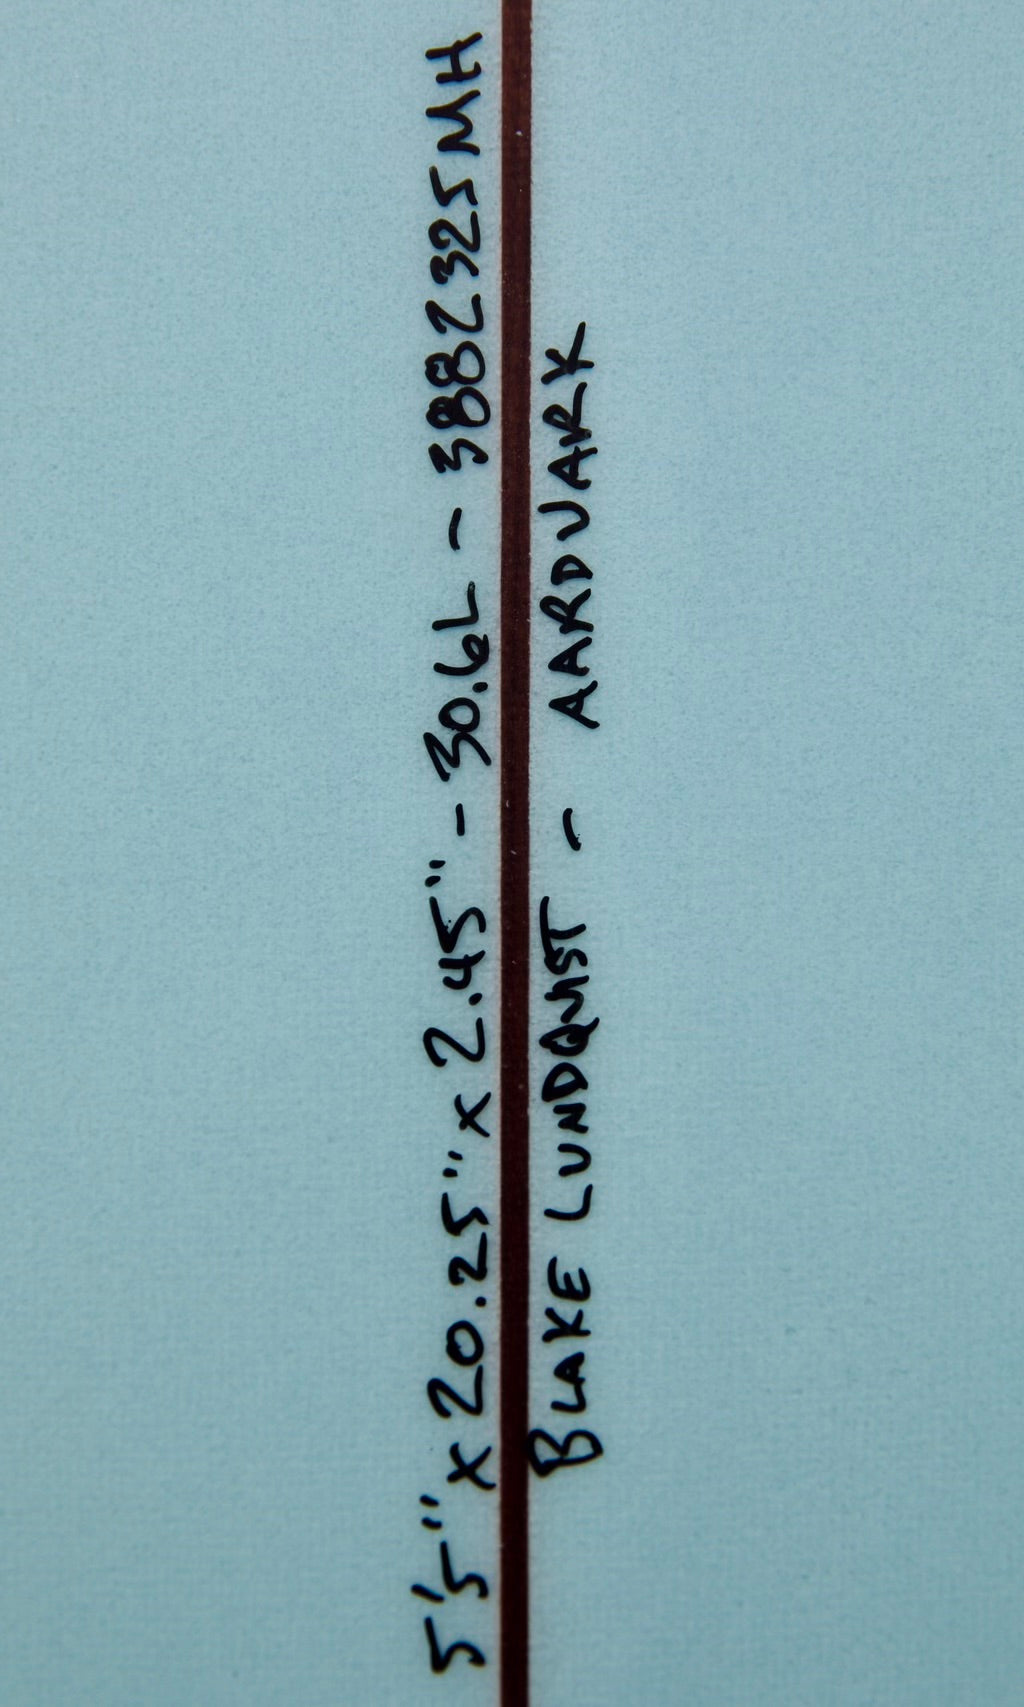 5'5" x 20.25" x 2.45" - 30.6L - 3882325MH
BLAKE LUNDQUIST - AARDVARK